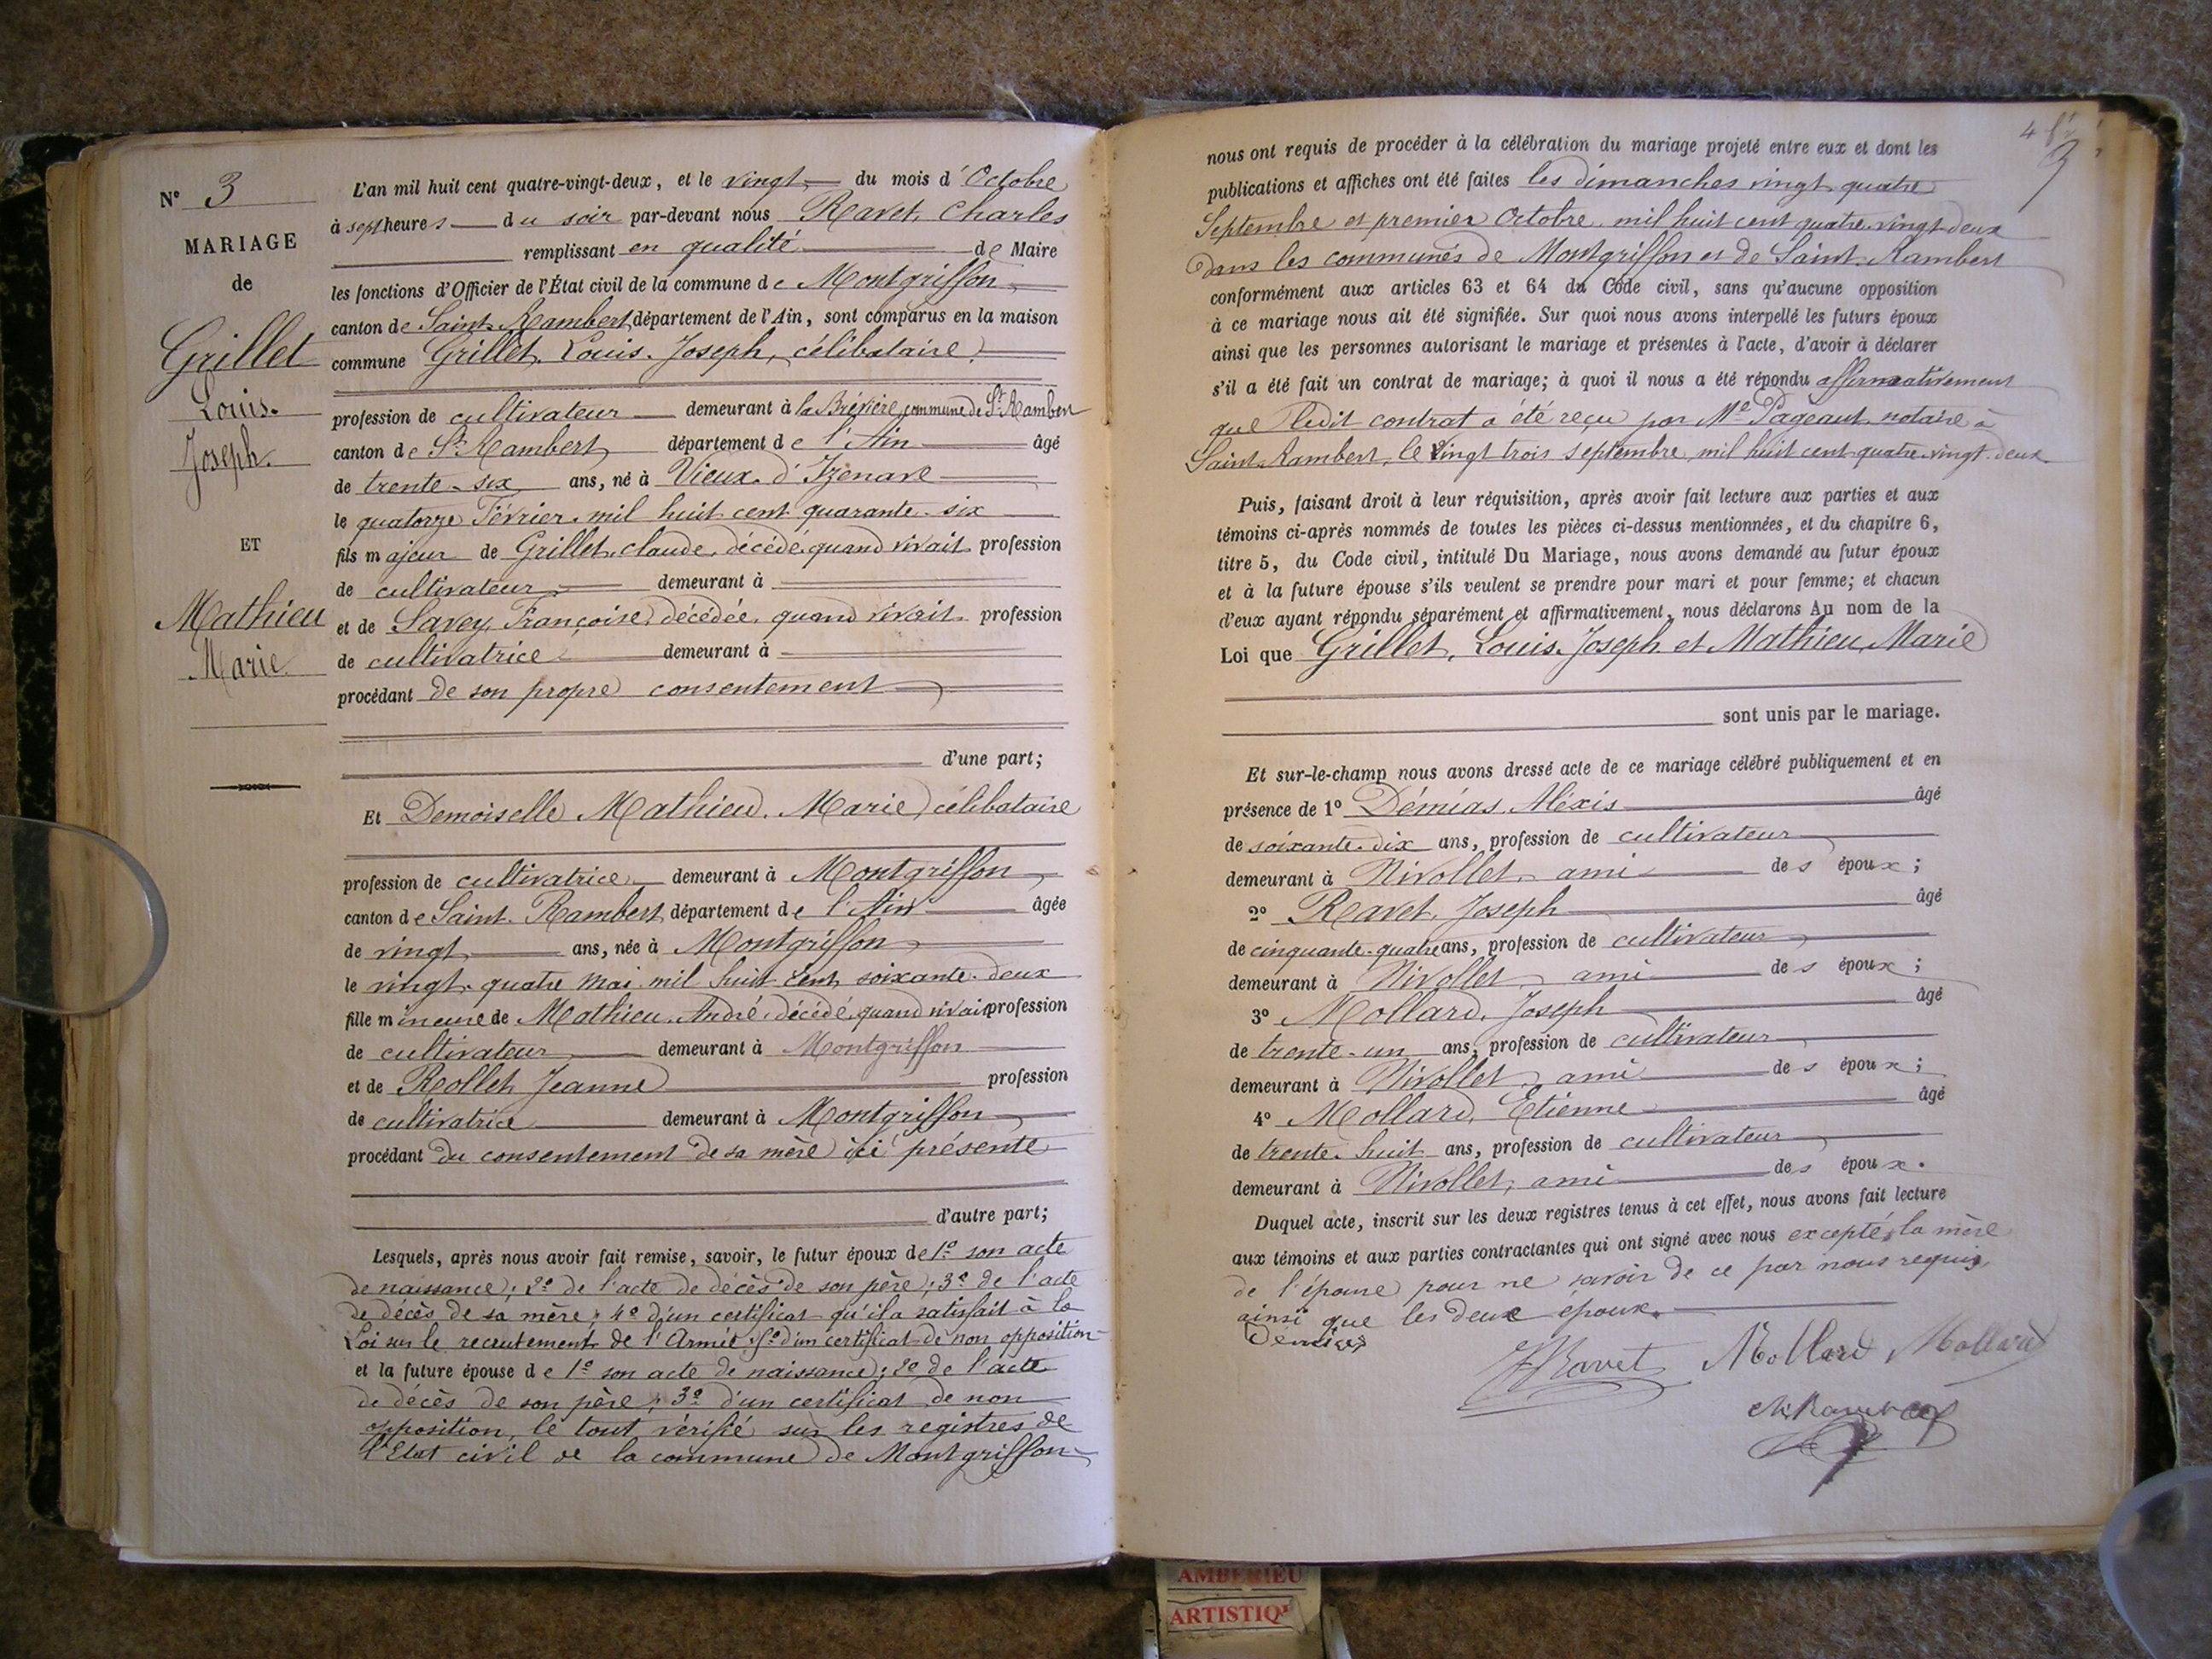 N° 3
MARIAGE
de
Grillet
Louis.
Joseph.
ET
Mathieu
Marie
L'an mil huit cent quatre-vingt-deux, et le vingt du mois d'Octobre
à sept heures du soir par-devant nous Ravet Charles
remplissant en qualité de Maire
les fonctions d'Officier de l'État civil de la commune de Montgriffon
canton de Saint-Rambert, département de l'Ain, sont comparus en la maison
commune Grillet, Louis. Joseph, célibataire,
profession de cultivateur demeurant à la Brévière, commune de St Rambert
canton de St Rambert département de l'Ain âgé
de trente-six ans, né à Vieux d'Izenave
le quatorze Février mil huit cent quarante-six
fils majeur de Grillet, claude, décédé quand vivait profession
de cultivateur demeurant à
et de Savey, Françoise, décédée, quand vivait profession
de cultivatrice demeurant à
procédant de son propre consentement
d'une part;
Et Demoiselle Mathieu. Marie, célibataire
profession de cultivatrice demeurant à Montgriffon
canton de Saint-Rambert département de l'Ain âgée
de vingt ans, née à Montgriffon
le vingt-quatre Mai mil huit cent soixante-deux
fille mineure de Mathieu, André, décédé, quand vivait profession
de cultivateur demeurant à Montgriffon
et de Rollet, Jeanne profession
de cultivatrice demeurant à Montgriffon
procédant du consentement de sa mère ici présente
d'autre part;
Lesquels, après nous avoir fait remise, savoir, le futur époux de 1° son acte
de naissance; 2° de l'acte de décès de son père; 3° de l'acte
de décès de sa mère; 4° d'un certificat qu'il a satisfait à la
Loi sur le recrutement de l'Armée; 5° d'un certificat de non opposition
et la future épouse de 1° son acte de naissance; 2° de l'acte
de décès de son père; 3° d'un certificat de non
opposition, le tout vérifié sur les registres de
l'Etat civil de la commune de Montgriffon
4
3
nous ont requis de procéder à la célébration du mariage projeté entre eux et dont les
publications et affiches ont été faites les dimanches vingt quatre
Septembre et premier Octobre mil huit cent quatre-vingt-deux
dans les communes de Montgriffon et de Saint-Rambert
conformément aux articles 63 et 64 du Code civil, sans qu'aucune opposition
à ce mariage nous ait été signifiée. Sur quoi nous avons interpellé les futurs époux
ainsi que les personnes autorisant le mariage et présentes à l'acte, d'avoir à déclarer
s'il a été fait un contrat de mariage; à quoi il nous a été répondu affirmativement
que ledit contrat a été reçu par Me Pageaut notaire à
Saint-Rambert, le vingt trois septembre mil huit cent quatre-vingt-deux
Puis, faisant droit à leur réquisition, après avoir fait lecture aux parties et aux
témoins ci-après nommés de toutes les pièces ci-dessus mentionnées, et du chapitre 6,
titre 5, du Code civil, intitulé Du Mariage, nous avons demandé au futur époux
et à la future épouse s'ils veulent se prendre pour mari et pour femme; et chacun
d'eux ayant répondu séparément et affirmativement, nous déclarons Au nom de la
Loi que Grillet, Louis. Joseph et Mathieu, Marie
sont unis par le mariage.
Et sur-le-champ nous avons dressé acte de ce mariage célébré publiquement et en
présence de 1° Démias, Aléxis âgé
de soixante-dix ans, profession de cultivateur
demeurant à Nivollet, ami des époux;
2° Ravet, Joseph âgé
de cinquante-quatre ans, profession de cultivateur
demeurant à Nivollet, ami des époux;
3° Mollard, Joseph âgé
de trente-un ans, profession de cultivateur
demeurant à Nivollet, ami des époux;
4° Mollard, Etienne âgé
de trente-huit ans, profession de cultivateur
demeurant à Nivollet, ami des époux.
Duquel acte, inscrit sur les deux registres tenus à cet effet, nous avons fait lecture
aux témoins et aux parties contractantes qui ont signé avec nous excepté, la mère
de l'épouse pour ne savoir de ce par nous requis,
ainsi que les deux époux.
Demias
Ravet Mollard Mollard
AMBERIEU
ARTISTIQ